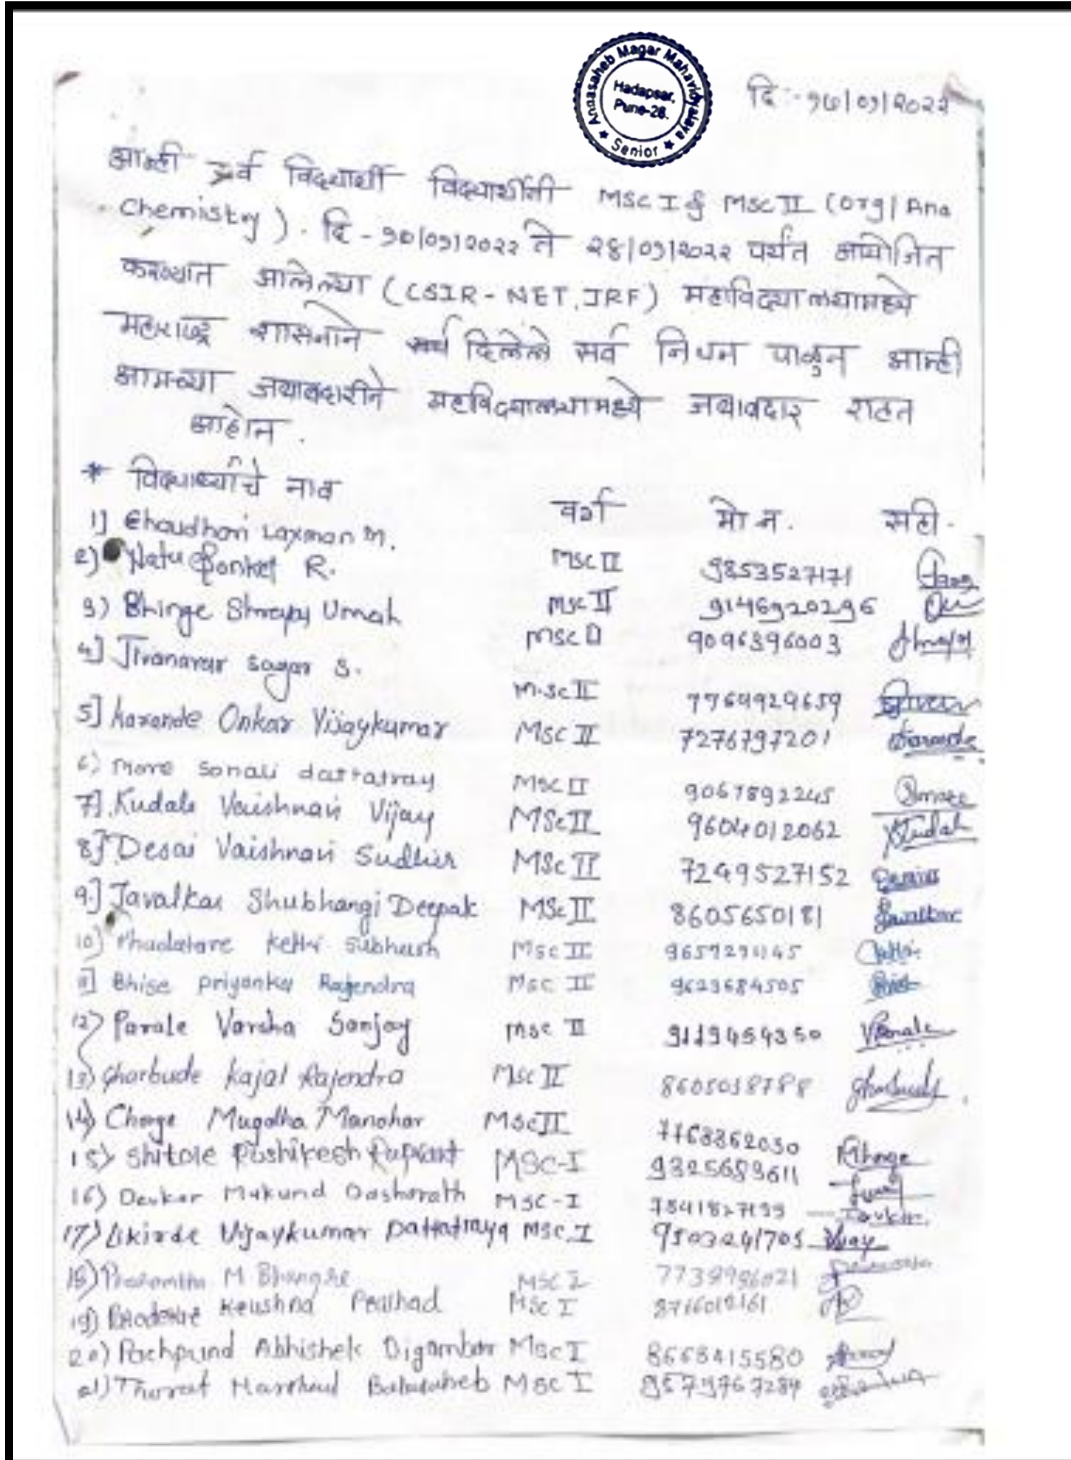 Annasaheb Magar Mahavidyalaya
Hadapsar,
Pune-28.
★ Senior ★
दि :- १७/०१/२०२२
आम्ही सर्व विद्यार्थी विद्यार्थीनी MSC I & MSC II (org/Ana
Chemistry). दि - १७/०१/२०२२ ते २८/०१/२०२२ पर्यंत आयोजित
करण्यात आलेल्या (CSIR-NET, JRF) महाविद्यालयामध्ये
महाराष्ट्र शासनाने दिलेले सर्व नियम पाळुन आम्ही
आमच्या जबाबदारीने महाविद्यालयामध्ये जबाबदार राहत
आहोत.
* विद्यार्थ्यांचे नाव वर्ग मो.न. सही.
1] Chaudhari Laxman M. MSC II 9853527171
2) Natu R. MSC II 9146920296
3) Bhinge Umah MSC II 9096396003
4] Jivanavar Sagar S. M.SC II 7764929659
5] Karande Onkar Vijaykumar MSC II 7276797201 Karande
6) More Sonali dattatray MSC II 9067892245 Smore
7]. Kudale Vaishnavi Vijay MSC II 9604012062 Kudale
8] Desai Vaishnavi Sudhir MSC II 7249527152
9.] Javalkar Shubhangi Deepak MSc II 8605650181 Javalkar
10) Phadatare Subhash MSC II
11] Bhise Priyanka Rajendra MSC II 9623684505
12) Parale Varsha Sanjay MSC II 9119454350 VParale
13) Gharbude Kajal Rajendra MSC II 8605038788 Gharbude
14) Chorge Manohar MSC II 7768862030
15) Shitole MSC-I 9325689611
16) Devkar Mukund Dasharath MSC-I
17) Vijaykumar Dattatraya MSC I 9503241705 Vijay
18) M MSC I 7738996021
19) Krushna Pralhad MSC I
20) Pachpund Abhishek Digambar MSC I 8668415580
21) Thorat Harshad Balasaheb MSC I 9579767284